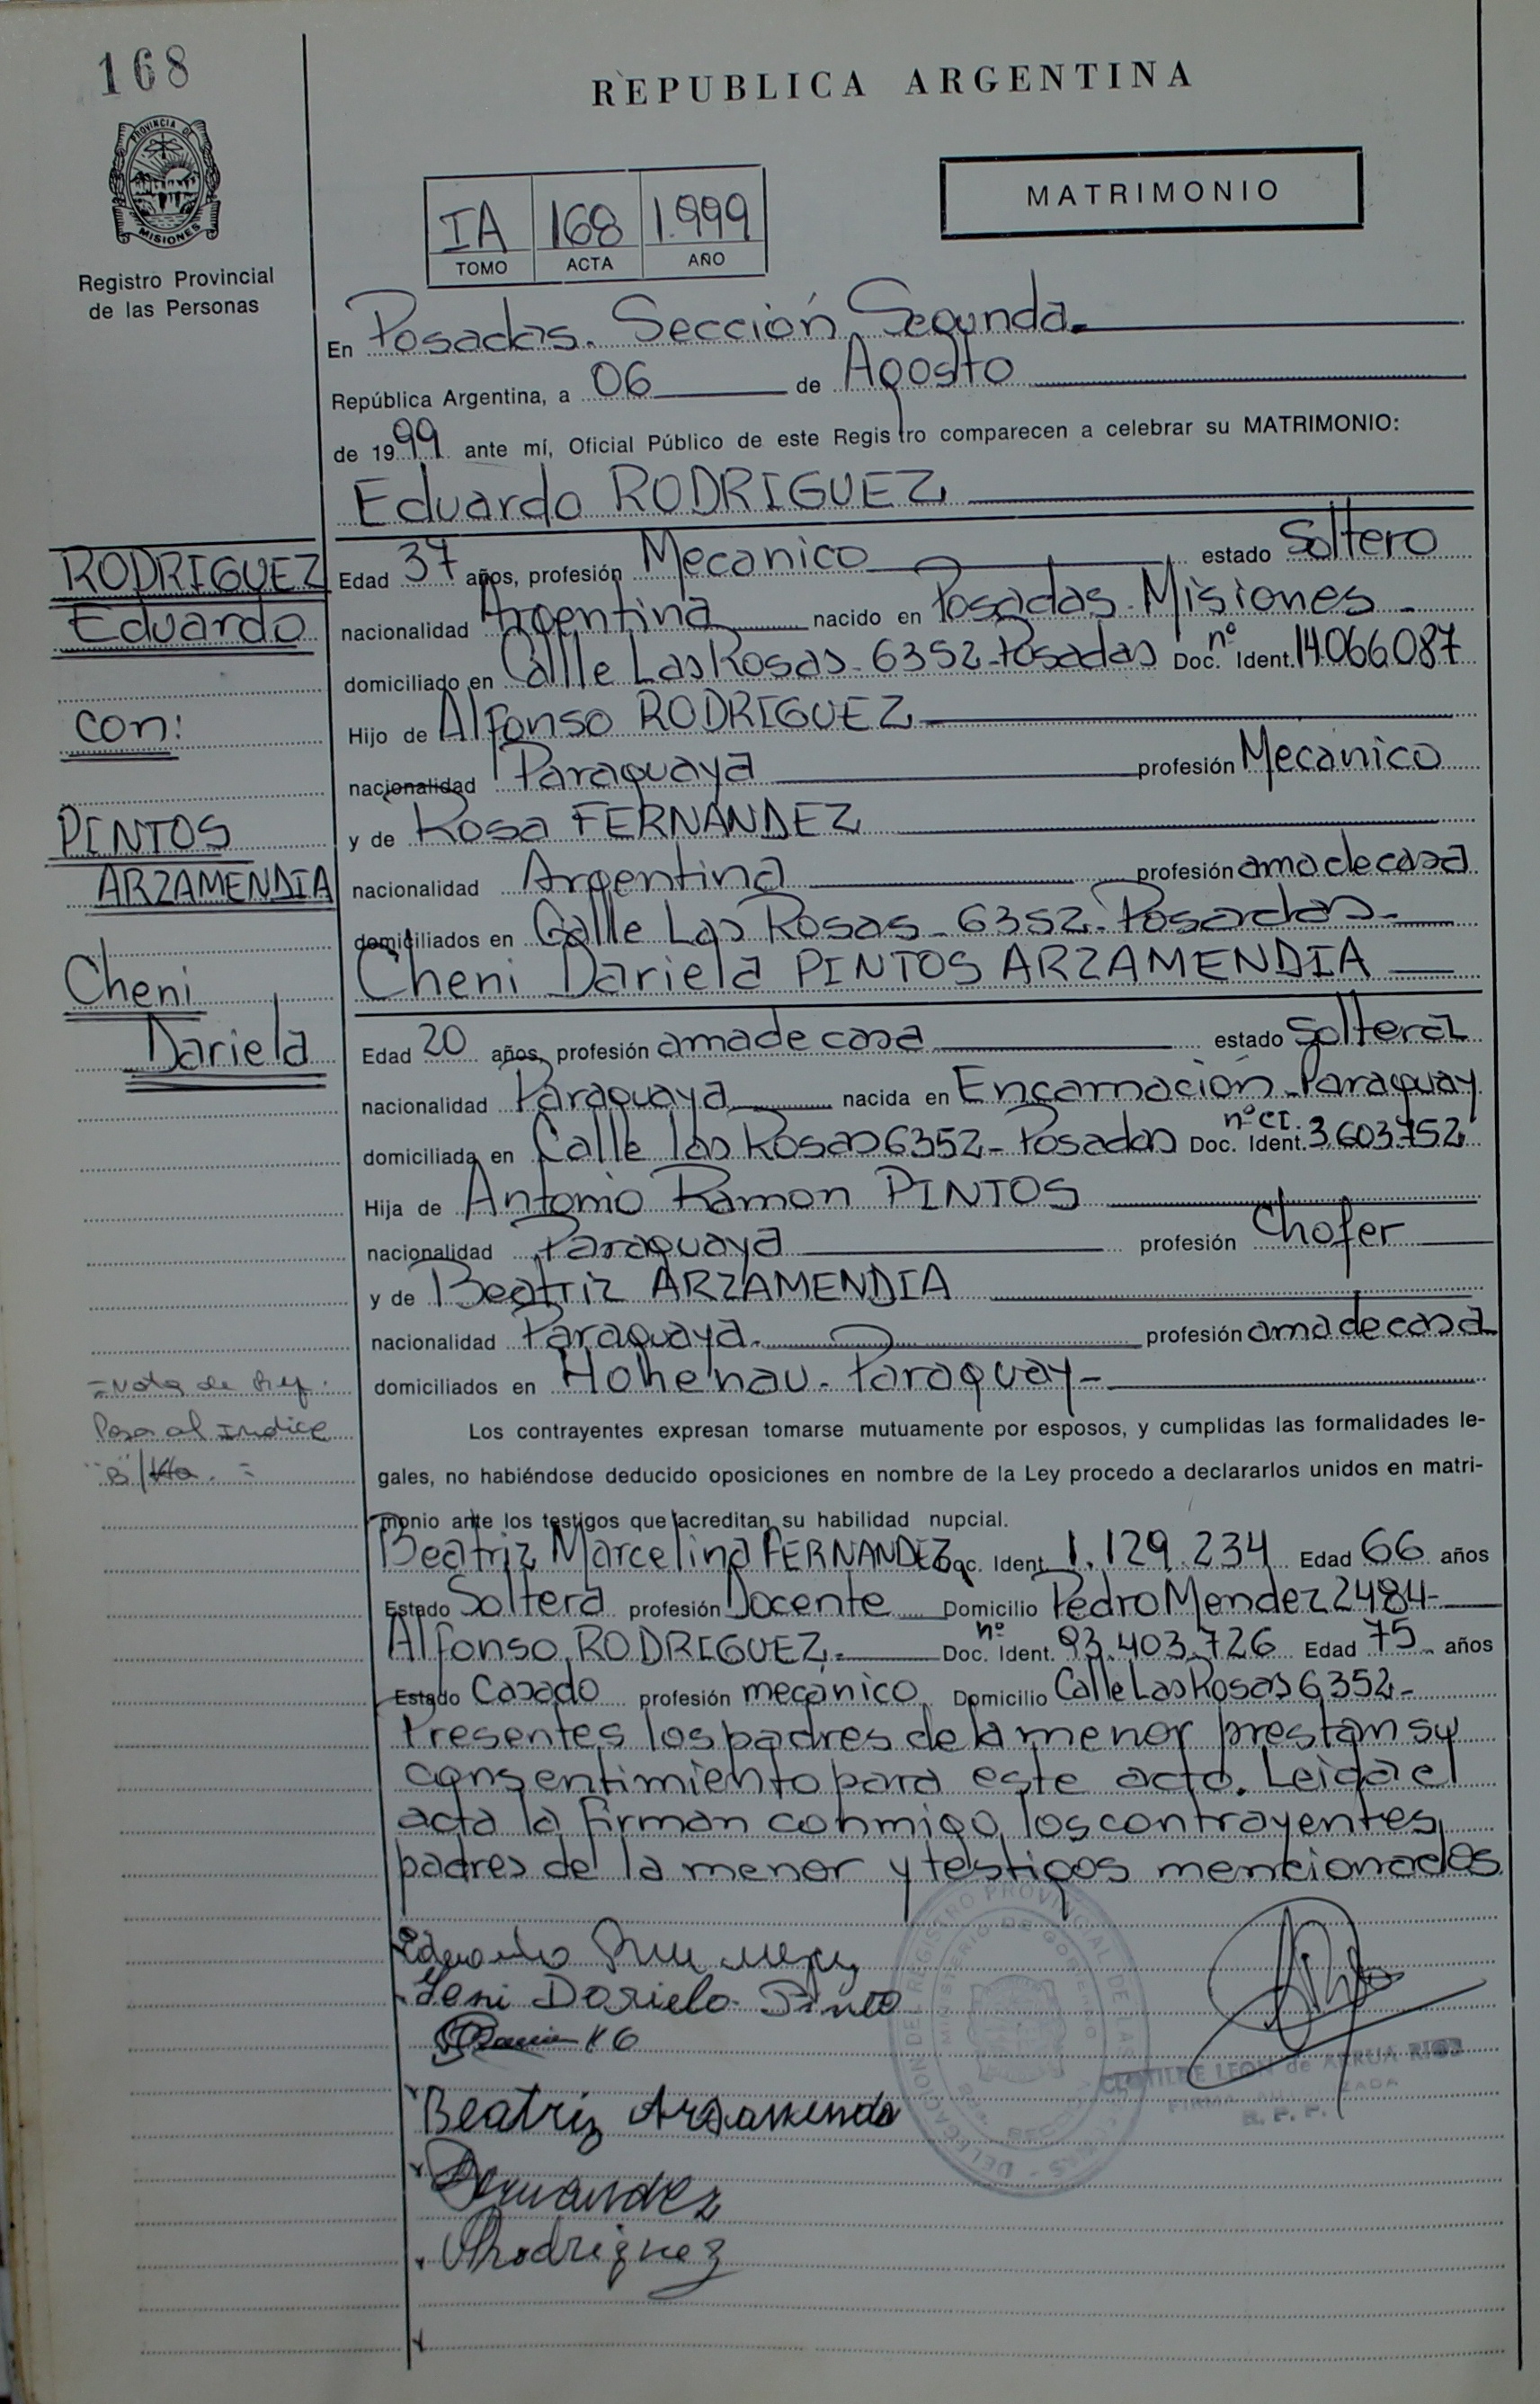 168
REPUBLICA ARGENTINA
PROVINCIA DE
MISIONES
Registro Provincial
de las Personas
IA 168 1.999
TOMO ACTA AÑO
MATRIMONIO
En Posadas. Sección Segunda.
República Argentina, a 06 de Agosto
de 1999 ante mí, Oficial Público de este Registro comparecen a celebrar su MATRIMONIO:
Eduardo RODRIGUEZ
RODRIGUEZ
Eduardo
con:
PINTOS
ARZAMENDIA
Cheni
Dariela
Edad 37 años, profesión Mecanico estado Soltero
nacionalidad Argentina nacido en Posadas - Misiones -
domiciliado en Callle Las Rosas - 6352 - Posadas Doc. nº Ident. 14.066.087
Hijo de Alfonso RODRIGUEZ
nacionalidad Paraguaya profesión Mecanico
y de Rosa FERNANDEZ
nacionalidad Argentina profesión ama de casa
domiciliados en Calle Las Rosas - 6352 - Posadas -
Cheni Dariela PINTOS ARZAMENDIA
Edad 20 años, profesión ama de casa estado Soltera
nacionalidad Paraguaya nacida en Encarnación - Paraguay
domiciliada en Calle las Rosas 6352 - Posadas Doc. nº CI. Ident. 3.603.752
Hija de Antonio Ramon PINTOS
nacionalidad Paraguaya profesión Chofer
y de Beatriz ARZAMENDIA
nacionalidad Paraguaya. profesión ama de casa
domiciliados en Hohenau - Paraguay -
= Nota de Ref.
Pasa al Indice
"B"
Los contrayentes expresan tomarse mutuamente por esposos, y cumplidas las formalidades le-
gales, no habiéndose deducido oposiciones en nombre de la Ley procedo a declararlos unidos en matri-
monio ante los testigos que acreditan su habilidad nupcial.
Beatriz Marcelina FERNANDEZ Doc. Ident. 1.129.234 Edad 66 años
Estado Soltera profesión Docente Domicilio Pedro Mendez 2484 -
Alfonso RODRIGUEZ. Doc. nº Ident. 93.403.726 Edad 75 años
Estado Casado profesión mecanico Domicilio Calle Las Rosas 6352 -
Presentes los padres de la menor prestan su
consentimiento para este acto. Leida el
acta la firman conmigo, los contrayentes,
padres de la menor y testigos mencionados
Eduardo
Yeni Dariela Pinto
Beatriz Arzamendia
Fernandez
Rodriguez
DELEGACION DEL REGISTRO PROVINCIAL DE LAS PERSONAS
MINISTERIO DE GOBIERNO
CLOTILDE LEON de ARRUA RIOS
FIRMA AUTORIZADA
R. P. P.